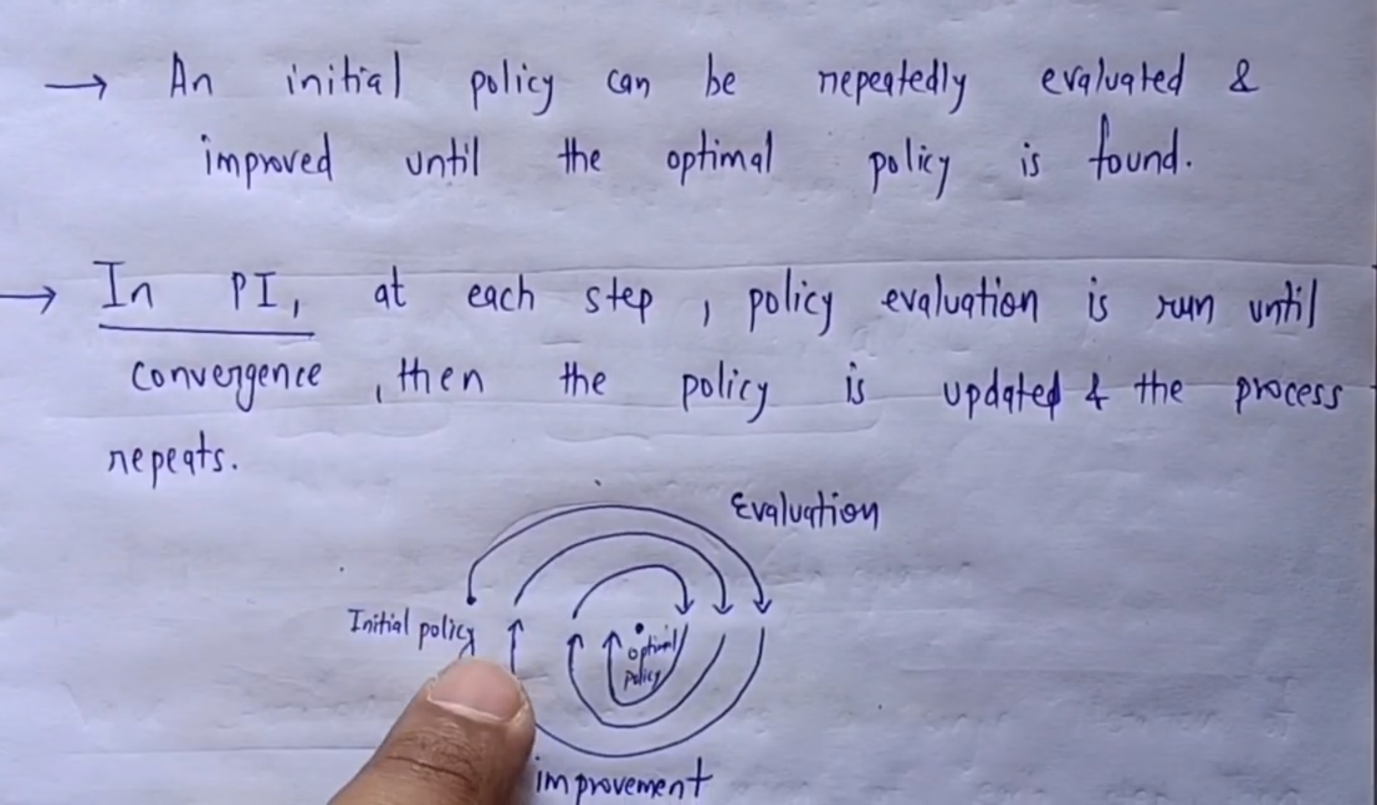 → An initial policy can be repeatedly evaluated &
improved until the optimal policy is found.
→ In PI, at each step, policy evaluation is run until
convergence, then the policy is updated & the process
repeats.
Evaluation
Initial policy
optimal
policy
improvement